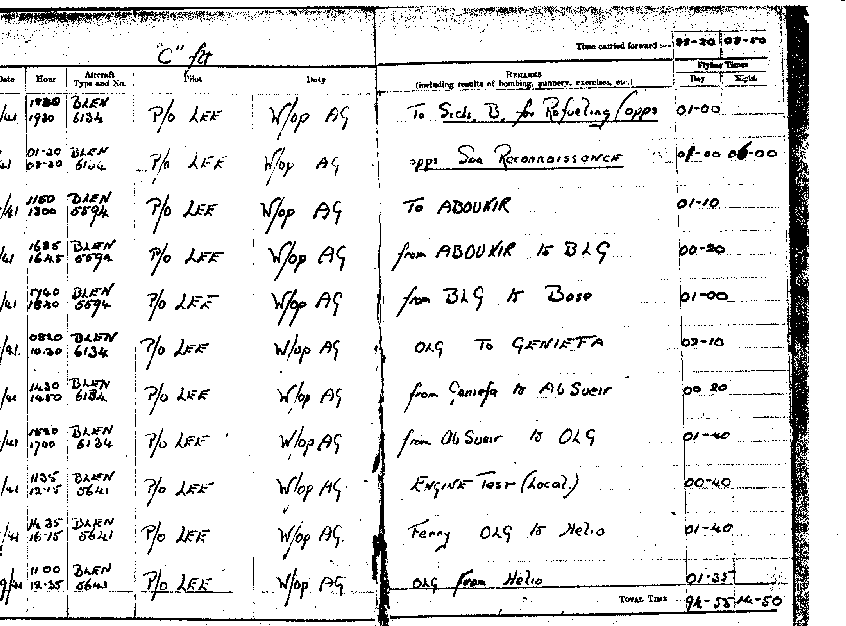 "C" flt
Time carried forward :—
Date Hour Aircraft Type and No. Pilot Duty REMARKS (including results of bombing, gunnery, exercises, etc.) Flying Times Day Night
1930 BLEN 6134 P/o LEE W/op AG To Sidi. B. for Refueling/opps 01-00
BLEN P/o LEE W/op AG opps Sea RECONNAISSANCE
BLEN 5594 P/o LEE W/op AG To ABOUKIR 01-10
1635 1645 BLEN 5594 P/o LEE W/op AG from ABOUKIR to BLG 00-20
BLEN 5594 P/o LEE W/op AG from BLG to Base 01-00
0820 10.30 BLEN 6134 P/o LEE W/op AG OLG To GENIEFA 02-10
1430 1450 BLEN 6134 P/o LEE W/op AG from Geniefa to Ab Sueir 00 20
1700 BLEN 6134 P/o LEE W/op AG from Ab Sueir to OLG 01-40
1135 12-15 BLEN 5641 P/o LEE W/op AG. ENGINE Test (Local.) 00-40
14.35 16-15 BLEN 5641 P/o LEE W/op AG. Ferry OLG to Helio 01-40
1100 12-35 BLEN 5641 P/o LEE W/op AG OLG from Helio 01-35
TOTAL TIME 94-55 14-50